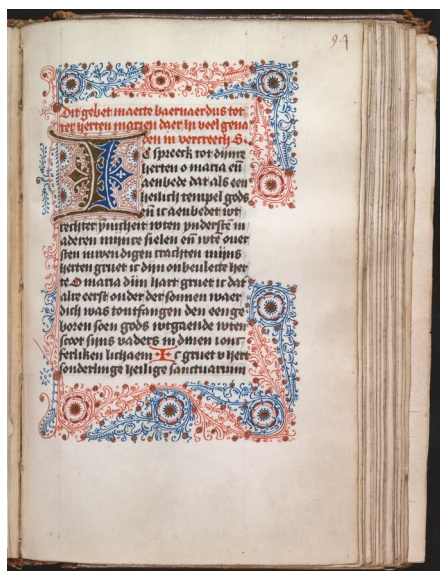 94
Dit gebet maecte baernaerdus tot
ter herten marien daer hi veel gena
den in vercreech
Ic spreeck tot dijnre
herten o maria eñ
aenbede dat als een
heilich tempel gods
eñ ic aenbedet wt
rechter ynicheit wten ynderstē in
aderen mijnre sielen eñ wtē ouer
sten inwendigen crachten mijns
herten gruet ic dijn onbeulecte her
te O maria dijn hart gruet ic dat
alre eerst onder der sonnen waer
dich was tontfangen den eenge
boren soen gods wtgaende wten
scoot sijns vaders in dinen ionc
ferliken lichaem Ic gruet v here
sonderlinge heilige sanctuarium